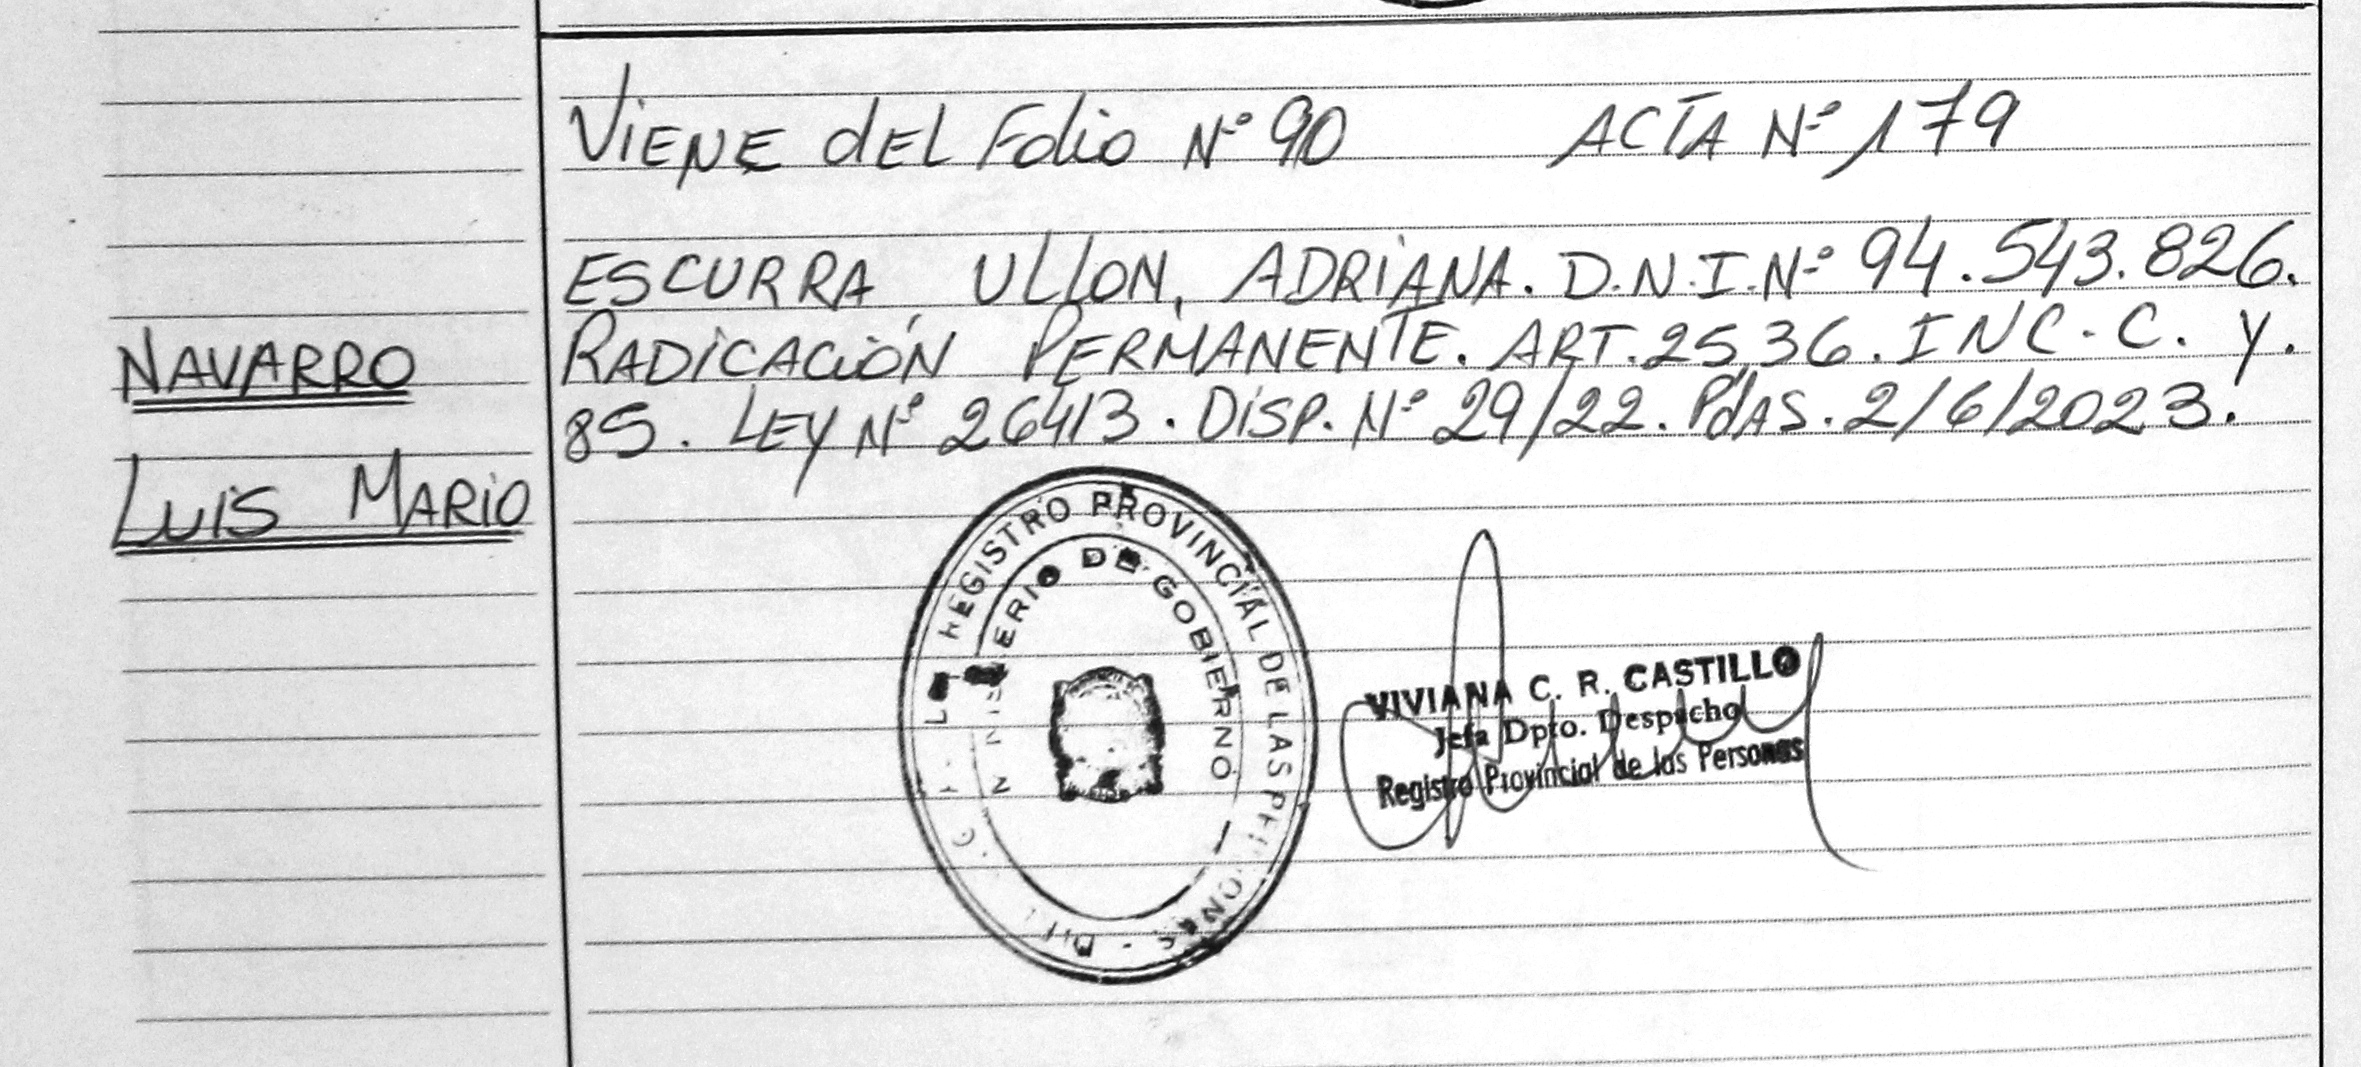 VIENE dEL Folio Nº 90 ACTA Nº 179
ESCURRA, ULLON, ADRIANA. D.N.I. Nº 94.543.826.
RADICACIÓN PERMANENTE. ART. 2536. INC. C. Y.
85. LEY Nº 26413. DISP. Nº 29/22. PdAS. 2/6/2023.
NAVARRO
LUIS MARIO
REGISTRO PROVINCIAL DE LAS
DE GOBIERNO
VIVIANA C. R. CASTILLO
Jefa Dpto. Despacho
Registro Provincial de las Personas